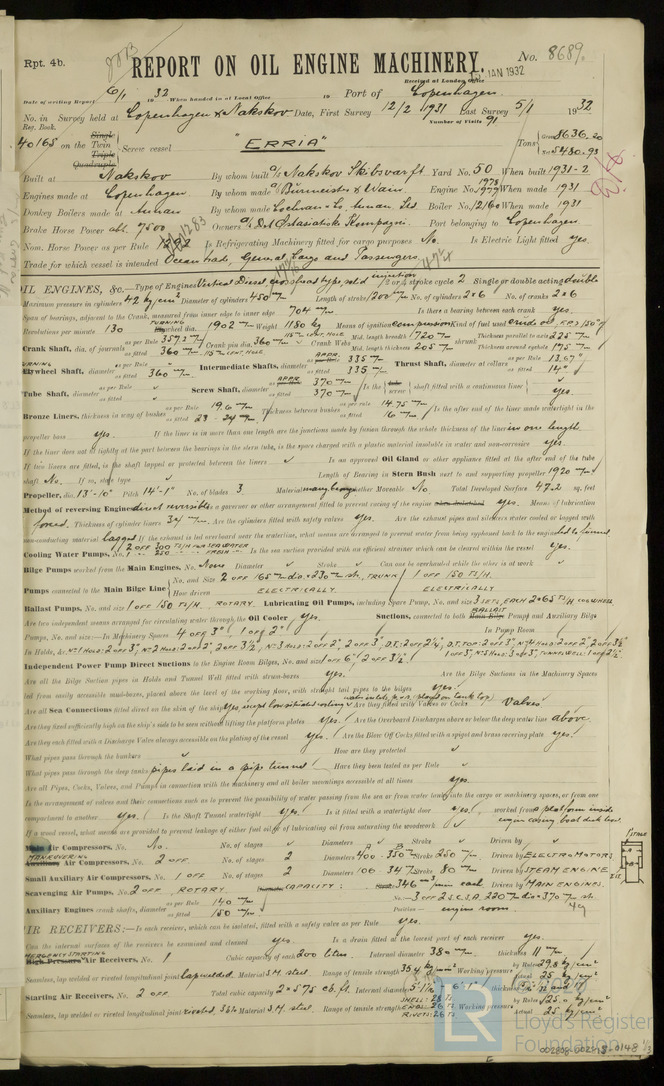 Rpt. 4b.
REPORT ON OIL ENGINE MACHINERY.
No. 8689.
Received at London Office
JAN 1932
Date of writing Report 6/1 1932 When handed in at Local Office 19 Port of Copenhagen
No. in Survey held at Copenhagen & Nakskov Date, First Survey 12/2 1931 Last Survey 5/1 1932
Reg. Book. Number of Visits 91
40165 on the Single Twin Triple Quadruple Screw vessel "ERRIA" Tons Gross 8636.20 Net 5480.93
Built at Nakskov By whom built A/S Nakskov Skibsværft Yard No. 50 When built 1931-2
Engines made at Copenhagen By whom made A/S Burmeister & Wain Engine No. 1978 1979 When made 1931
Donkey Boilers made at Annan By whom made Cochran & Co, Annan Ltd Boiler No. 12160 When made 1931
Brake Horse Power abt. 7500 Owners A/S Det Østasiatisk Kompagni Port belonging to Copenhagen
Nom. Horse Power as per Rule Is Refrigerating Machinery fitted for cargo purposes No. Is Electric Light fitted yes.
Trade for which vessel is intended Ocean trade, General Cargo and Passengers.
OIL ENGINES, &c.—Type of Engines Vertical Diesel crosshead type, solid injection 2 or 4 stroke cycle 2 Single or double acting double
Maximum pressure in cylinders 42 kg/cm² Diameter of cylinders 450 m/m Length of stroke 1200 m/m No. of cylinders 2x6 No. of cranks 2x6
Span of bearings, adjacent to the Crank, measured from inner edge to inner edge 704 m/m Is there a bearing between each crank yes.
Revolutions per minute 130 Turning wheel dia. 1902 m/m Weight 1180 kg Means of ignition compression Kind of fuel used crude oil, F.P.> 150°F
Crank Shaft, dia. of journals as per Rule 357.3 m/m as fitted 360 m/m Crank pin dia. 360 m/m Crank Webs Mid. length breadth 720 m/m Mid. length thickness 205 m/m shrunk Thickness parallel to axis 225 m/m Thickness around eyehole 175 m/m
Flywheel Shaft, diameter as per Rule as fitted 360 m/m Intermediate Shafts, diameter as per Rule APPR. 335 m/m as fitted 335 m/m Thrust Shaft, diameter at collars as per Rule 13.67" as fitted 14"
Tube Shaft, diameter as per Rule as fitted Screw Shaft, diameter as per Rule APPR. 370 m/m as fitted 370 m/m Is the tube screw shaft fitted with a continuous liner yes.
Bronze Liners, thickness in way of bushes as per Rule 19.6 m/m as fitted 23-24 m/m Thickness between bushes as per rule 14.75 m/m as fitted 16 m/m Is the after end of the liner made watertight in the
propeller boss yes. If the liner is in more than one length are the junctions made by fusion through the whole thickness of the liner in one length.
If the liner does not fit tightly at the part between the bearings in the stern tube, is the space charged with a plastic material insoluble in water and non-corrosive yes
If two liners are fitted, is the shaft lapped or protected between the liners Is an approved Oil Gland or other appliance fitted at the after end of the tube
shaft No. If so, state type Length of Bearing in Stern Bush next to and supporting propeller 1920 m/m
Propeller, dia. 13'-10" Pitch 14'-1" No. of blades 3 Material mang. bronze whether Moveable No Total Developed Surface 47.2 sq. feet
Method of reversing Engines direct reversible Is a governor or other arrangement fitted to prevent racing of the engine yes. Means of lubrication
forced. Thickness of cylinder liners 34 m/m Are the cylinders fitted with safety valves yes. Are the exhaust pipes and silencers water cooled or lagged with
non-conducting material lagged If the exhaust is led overboard near the waterline, what means are arranged to prevent water from being syphoned back to the engine led to funnel
Cooling Water Pumps, No. 2 OFF 300 TS/H FOR SEAWATER Is the sea suction provided with an efficient strainer which can be cleared within the vessel yes.
Bilge Pumps worked from the Main Engines, No. None Diameter Stroke Can one be overhauled while the other is at work
Pumps connected to the Main Bilge Line No. and Size 2 OFF 165 m/m dia. x 230 m/m st., TRUNK 1 OFF 150 TS/H.
How driven ELECTRICALLY ELECTRICALLY
Ballast Pumps, No. and size 1 OFF 150 TS/H. ROTARY Lubricating Oil Pumps, including Spare Pump, No. and size 3 SETS, EACH 2x65 TS/H COGWHEEL
Are two independent means arranged for circulating water through the Oil Cooler yes. Suctions, connected to both Main Bilge BALLAST Pumps and Auxiliary Bilge
Pumps, No. and size:—In Machinery Spaces 4 OFF 3" 1 OFF 2" In Pump Room
In Holds, &c.
Independent Power Pump Direct Suctions to the Engine Room Bilges, No. and size 1 OFF 6" 2 OFF 3½"
Are all the Bilge Suction pipes in Holds and Tunnel Well fitted with strum-boxes yes. Are the Bilge Suctions in the Machinery Spaces
led from easily accessible mud-boxes, placed above the level of the working floor, with straight tail pipes to the bilges yes.
Are all Sea Connections fitted direct on the skin of the ship Are they fitted with Valves or Cocks Valves
Are they fixed sufficiently high on the ship's side to be seen without lifting the platform plates yes. Are the Overboard Discharges above or below the deep water line above.
Are they each fitted with a Discharge Valve always accessible on the plating of the vessel yes. Are the Blow Off Cocks fitted with a spigot and brass covering plate yes.
What pipes pass through the bunkers How are they protected
What pipes pass through the deep tanks pipes laid in a pipe tunnel Have they been tested as per Rule
Are all Pipes, Cocks, Valves, and Pumps in connection with the machinery and all boiler mountings accessible at all times yes.
Is the arrangement of valves and their connections such as to prevent the possibility of water passing from the sea or from water tanks into the cargo or machinery spaces, or from one
compartment to another yes. Is the Shaft Tunnel watertight yes. Is it fitted with a watertight door yes. worked from a platform inside engine casing boat deck level.
If a wood vessel, what means are provided to prevent leakage of either fuel oil or of lubricating oil from saturating the woodwork
Main Air Compressors, No. No. of stages Diameters Stroke Driven by
MANEUVERING Auxiliary Air Compressors, No. 2 OFF No. of stages 2 Diameters 400-350 m/m Stroke 250 m/m Driven by ELECTROMOTORS
Small Auxiliary Air Compressors, No. 1 OFF No. of stages 2 Diameters 106-34 m/m Stroke 80 m/m Driven by STEAM ENGINE
Scavenging Air Pumps, No. 2 OFF, ROTARY CAPACITY: 346 m³/min each Driven by MAIN ENGINES.
Auxiliary Engines crank shafts, diameter as per Rule 140 m/m as fitted 150 m/m No. 3 OFF 2.S.C.S.A. 220 m/m dia x 370 m/m st. Position engine room.
AIR RECEIVERS:—Is each receiver, which can be isolated, fitted with a safety valve as per Rule yes.
Can the internal surfaces of the receivers be examined and cleaned yes. Is a drain fitted at the lowest part of each receiver yes.
EMERGENCY STARTING High Pressure Air Receivers, No. 1 Cubic capacity of each 200 litres Internal diameter 380 m/m thickness 11 m/m
Seamless, lap welded or riveted longitudinal joint lapwelded. Material S.M. steel Range of tensile strength 35.4 kg/mm² Working pressure by Rules 29.8 kg/cm² Actual 25 kg/cm²
Starting Air Receivers, No. 2 OFF. Total cubic capacity 2x575 cb. ft. Internal diameter
Seamless, lap welded or riveted longitudinal joint riveted, Material S.M. steel. Range of tensile strength SHELL: 28 Ts. ENDS: 26 Ts. RIVETS: 26 Ts. Working pressure by Rules Actual 25 kg/cm²
LR
Lloyd's Register
Foundation
002808-002818-0148 1/3